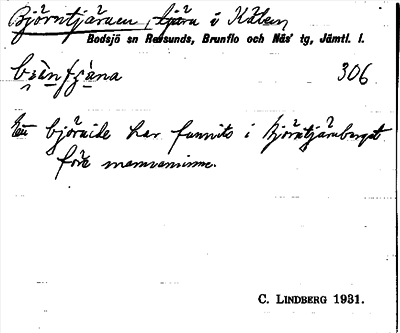 Björntjärnen, tjärn i Kälen
Bodsjö sn Revsunds, Brunflo och Näs' tg, Jämtl. l.
306
En björnide har funnits i Björntjärnberget
före mannaminne.
C. LINDBERG 1931.